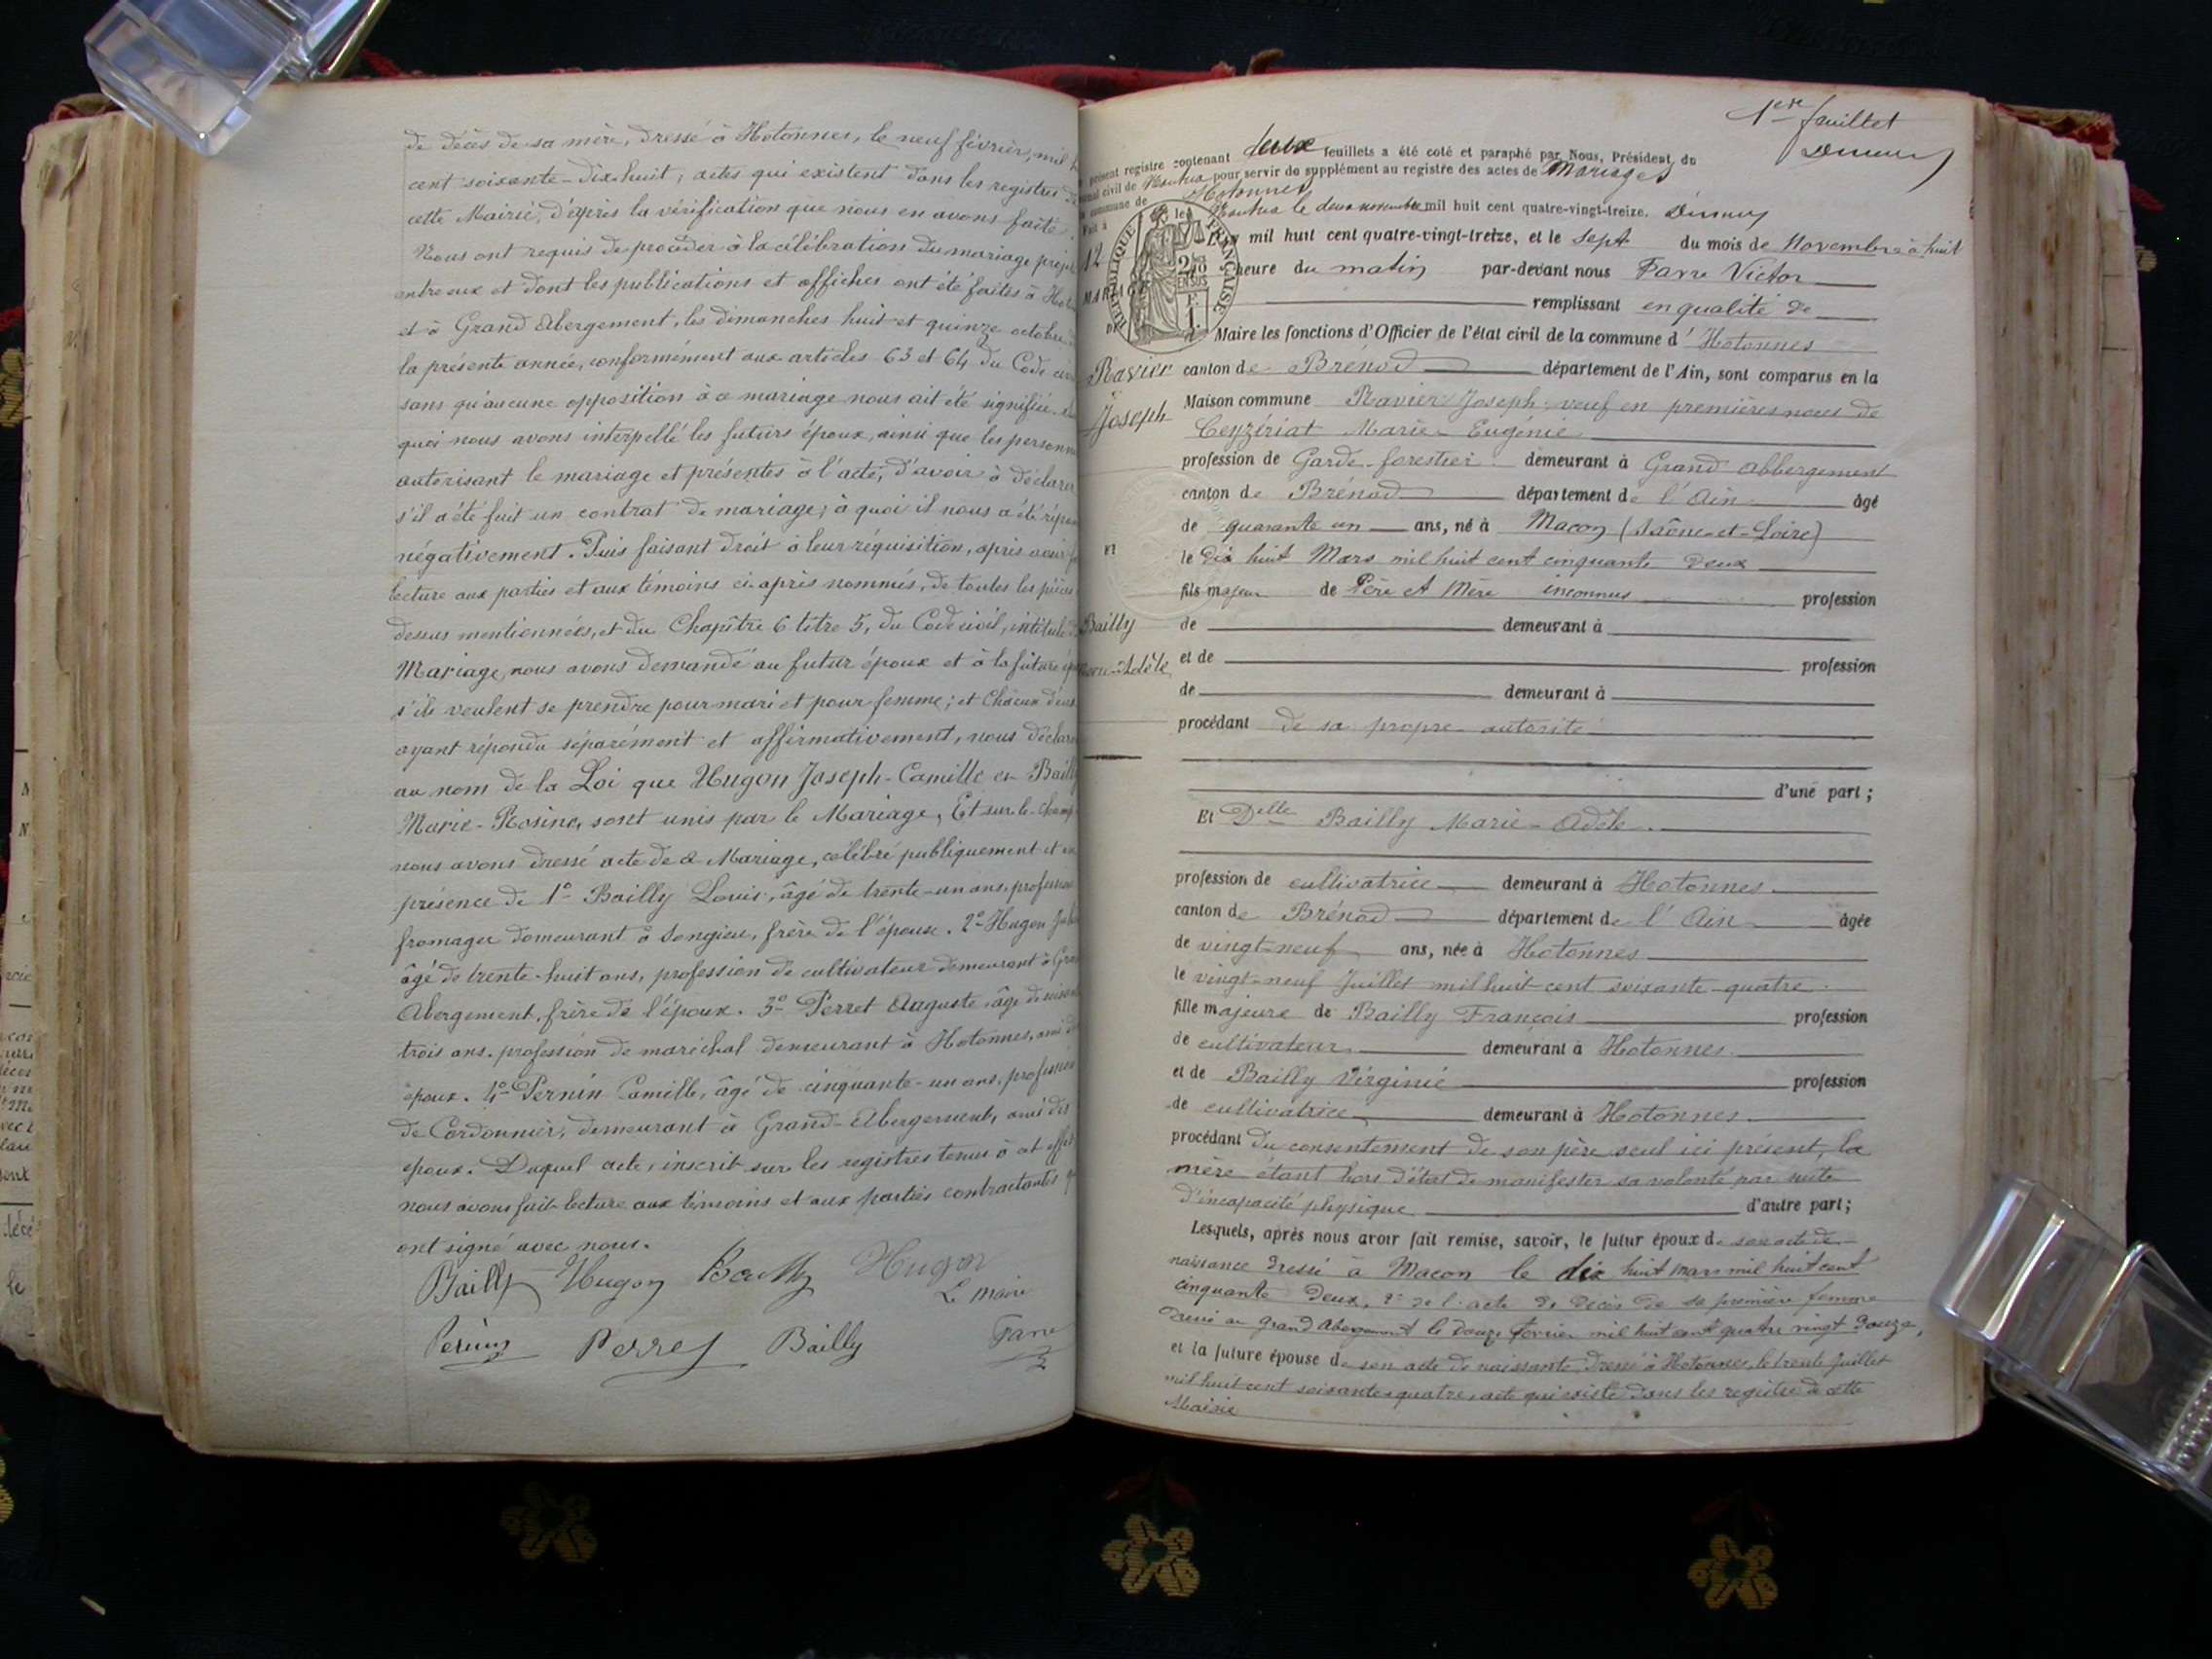 de décès de sa mère, dressé à Hotonnes, le neuf février, mil
cent soixante-dix-huit, actes qui existent dans les registres de
cette Mairie, d'après la vérification que nous en avons faite.
Nous ont requis de procéder à la célébration du mariage projeté
entre eux et dont les publications et affiches ont été faites à Hot
et à Grand Abergement, les dimanches huit et quinze octobre
la présente année, conformément aux articles 63 et 64 du Code civ
sans qu'aucune opposition à ce mariage nous ait été signifiée.
quoi nous avons interpellé les futurs époux, ainsi que les personn
autorisant le mariage et présentes à l'acte, d'avoir à déclarer
s'il a été fait un contrat de mariage; à quoi il nous a été répon
négativement. Puis faisant droit à leur réquisition, après avoir
lecture aux parties et aux témoins ci-après nommés, de toutes les pièces
dessus mentionnées, et du Chapitre 6 titre 5, du Code civil, intitulé
Mariage, nous avons demandé au futur époux et à la future ép
s'ils veulent se prendre pour mari et pour femme; et Chacun d'eux
ayant répondu séparément et affirmativement, nous déclaro
au nom de la Loi que Hugon Joseph-Camille et Bailly
Marie-Rosine, sont unis par le Mariage, Et sur-le-champ
nous avons dressé acte de ce Mariage, célébré publiquement et en
présence de 1° Bailly Louis, âgé de trente-un ans, profession
fromager demeurant à Songieu, frère de l'épouse. 2° Hugon
âgé de trente-huit ans, profession de cultivateur demeurant à Gra
Abergement, frère de l'époux. 3° Perret Auguste, âgé de
trois ans, profession de maréchal demeurant à Hotonnes, ami
époux. 4° Pernin Camille, âgé de cinquante-un ans, profession
de Cordonnier, demeurant à Grand-Abergement, ami des
époux. Duquel acte, inscrit sur les registres tenus à cet effet
nous avons fait lecture aux témoins et aux parties contractantes
ont signé avec nous.
Bailly Hugon Bailly Hugon
Le Maire
Perret Bailly Favre
1er feuillet
présent registre contenant deux feuillets a été coté et paraphé par Nous, Président du
civil de Nantua pour servir de supplément au registre des actes de Mariages
commune de Hotonnes
Fait à Nantua le deux novembre mil huit cent quatre-vingt-treize.
RÉPUBLIQUE FRANÇAISE
2/10 EN SUS
12
MARIAGE
DE
Ravier
Joseph
ET
Bailly
Marie-Adèle
L'an mil huit cent quatre-vingt-treize, et le sept du mois de Novembre à huit
heure du matin par-devant nous Favre Victor
remplissant en qualité de
Maire les fonctions d'Officier de l'état civil de la commune d'Hotonnes
canton de Brénod département de l'Ain, sont comparus en la
Maison commune Ravier Joseph veuf en premières noces de
Ceyzériat Marie-Eugénie
profession de Garde-forestier demeurant à Grand Abbergement
canton de Brénod département de l'Ain âgé
de quarante un ans, né à Macon (Saône-et-Loire)
le dix huit Mars mil huit cent cinquante deux
fils majeur de Père et Mère inconnus profession
de demeurant à
et de profession
de demeurant à
procédant de sa propre autorité
d'une part;
Et Delle Bailly Marie-Adèle
profession de cultivatrice demeurant à Hotonnes
canton de Brénod département de l'Ain âgée
de vingt-neuf ans, née à Hotonnes
le vingt-neuf Juillet mil huit cent soixante-quatre
fille majeure de Bailly François profession
de cultivateur demeurant à Hotonnes
et de Bailly Virginie profession
de cultivatrice demeurant à Hotonnes
procédant du consentement de son père seul ici présent, la
mère étant hors d'état de manifester sa volonté par suite
d'incapacité physique d'autre part;
Lesquels, après nous avoir fait remise, savoir, le futur époux de son acte de
naissance dressé à Macon le dix huit Mars mil huit cent
cinquante deux, 2° de l'acte de décès de sa première femme
dressé au Grand Abergement le douze Février mil huit cent quatre vingt douze,
et la future épouse de son acte de naissance dressé à Hotonnes, le trente Juillet
mil huit cent soixante-quatre, acte qui existe dans les registres de cette
Mairie